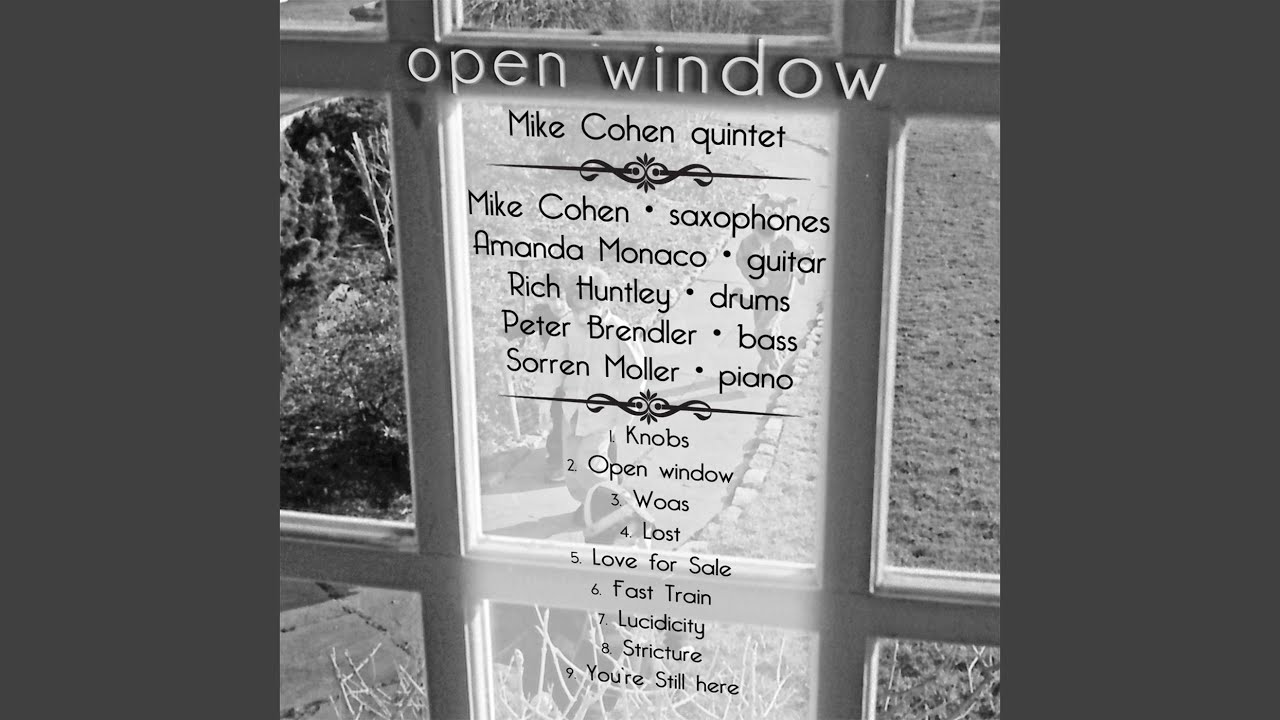 open window
Mike Cohen quintet
Mike Cohen • saxophones
Amanda Monaco • guitar
Rich Huntley • drums
Peter Brendler • bass
Sorren Moller • piano
1. Knobs
2. Open window
3. Woas
4. Lost
5. Love for Sale
6. Fast Train
7. Lucidicity
8. Stricture
9. You're Still here